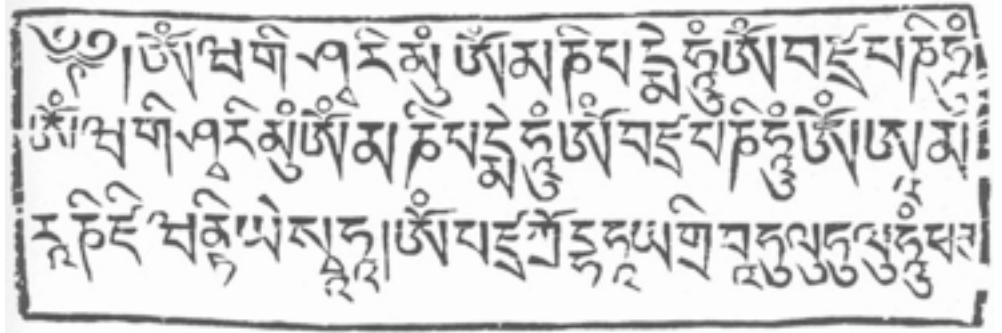 ༄༅།ཨོཾཝགིཤྭརིམུཾཨོཾམཎིཔདྨེཧཱུཾཨོཾབཛྲཔཎིཧཱུཾ
ཨོཾཝགིཤྭརིམུཾཨོཾམཎིཔདྨེཧཱུཾཨོཾབཛྲཔཎིཧཱུཾཨོཾཨཱམ
རཱཎིཛིཝནྟིཡེསྭཱཧཱ།ཨོཾབཛྲཀྲོདྷཧཱཡགྲིབཱཧུལུཧུལུཧཱུཾཕཊ